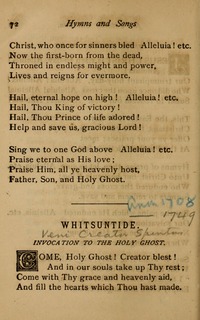 72 Hymns and Songs
Christ, who once for sinners bled Alleluia! etc.
Now the first-born from the dead,
Throned in endless might and power,
Lives and reigns for evermore.
Hail, eternal hope on high! Alleluia! etc.
Hail, Thou King of victory!
Hail, Thou Prince of life adored!
Help and save us, gracious Lord!
Sing we to one God above Alleluia! etc.
Praise eternal as His love;
Praise Him, all ye heavenly host,
Father, Son, and Holy Ghost.
1708
1749
WHITSUNTIDE.
Veni Creator Spiritus
INVOCATION TO THE HOLY GHOST.
COME, Holy Ghost! Creator blest!
And in our souls take up Thy rest;
Come with Thy grace and heavenly aid,
And fill the hearts which Thou hast made.